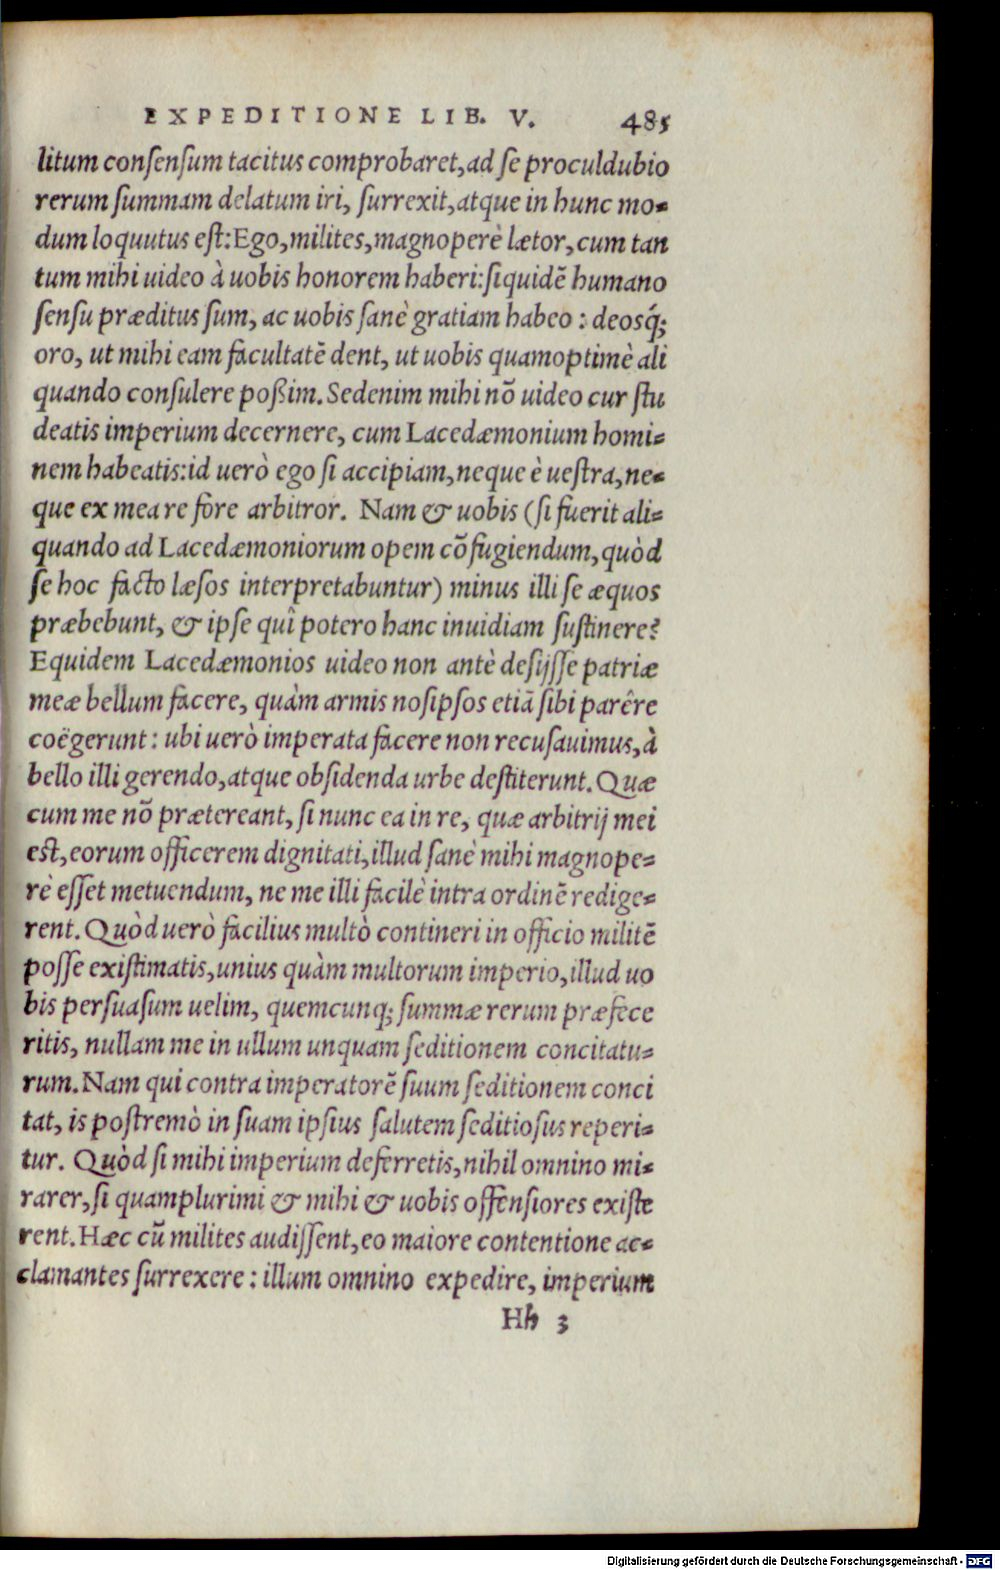 EXPEDITIONE LIB. V. 485
litum conſenſum tacitus comprobaret, ad ſe proculdubio
rerum ſummam delatum iri, ſurrexit, atque in hunc mo-
dum loquutus eſt: Ego, milites, magnoperè lætor, cum tan
tum mihi uideo à uobis honorem haberi: ſiquidē humano
ſenſu præditus ſum, ac uobis ſanè gratiam habeo: deosq́;
oro, ut mihi eam facultatē dent, ut uobis quamoptimè ali
quando conſulere poßim. Sedenim mihi nō uideo cur ſtu
deatis imperium decernere, cum Lacedæmonium homi-
nem habeatis: id uerò ego ſi accipiam, neque è ueſtra, ne-
que ex mea re fore arbitror. Nam & uobis (ſi fuerit ali-
quando ad Lacedæmoniorum opem cōfugiendum, quòd
ſe hoc facto læſos interpretabuntur) minus illi ſe æquos
præbebunt, & ipſe quî potero hanc inuidiam ſuſtinere?
Equidem Lacedæmonios uideo non antè deſijſſe patriæ
meæ bellum facere, quàm armis noſipſos etiā ſibi parêre
coëgerunt: ubi uerò imperata facere non recuſauimus, à
bello illi gerendo, atque obſidenda urbe deſtiterunt. Quæ
cum me nō prætereant, ſi nunc ea in re, quæ arbitrij mei
eſt, eorum officerem dignitati, illud ſanè mihi magnope-
rè eſſet metuendum, ne me illi facilè intra ordinē redige-
rent. Quòd uerò facilius multò contineri in officio militē
poſſe exiſtimatis, unius quàm multorum imperio, illud uo
bis perſuaſum uelim, quemcunq; ſummæ rerum præfece
ritis, nullam me in ullum unquam ſeditionem concitatu-
rum. Nam qui contra imperatorē ſuum ſeditionem conci
tat, is poſtremò in ſuam ipſius ſalutem ſeditioſus reperi-
tur. Quòd ſi mihi imperium deferretis, nihil omnino mi-
rarer, ſi quamplurimi & mihi & uobis offenſiores exiſte
rent. Hæc cū milites audiſſent, eo maiore contentione ac-
clamantes ſurrexere: illum omnino expedire, imperium
Hh 3
Digitalisierung gefördert durch die Deutsche Forschungsgemeinschaft - DFG